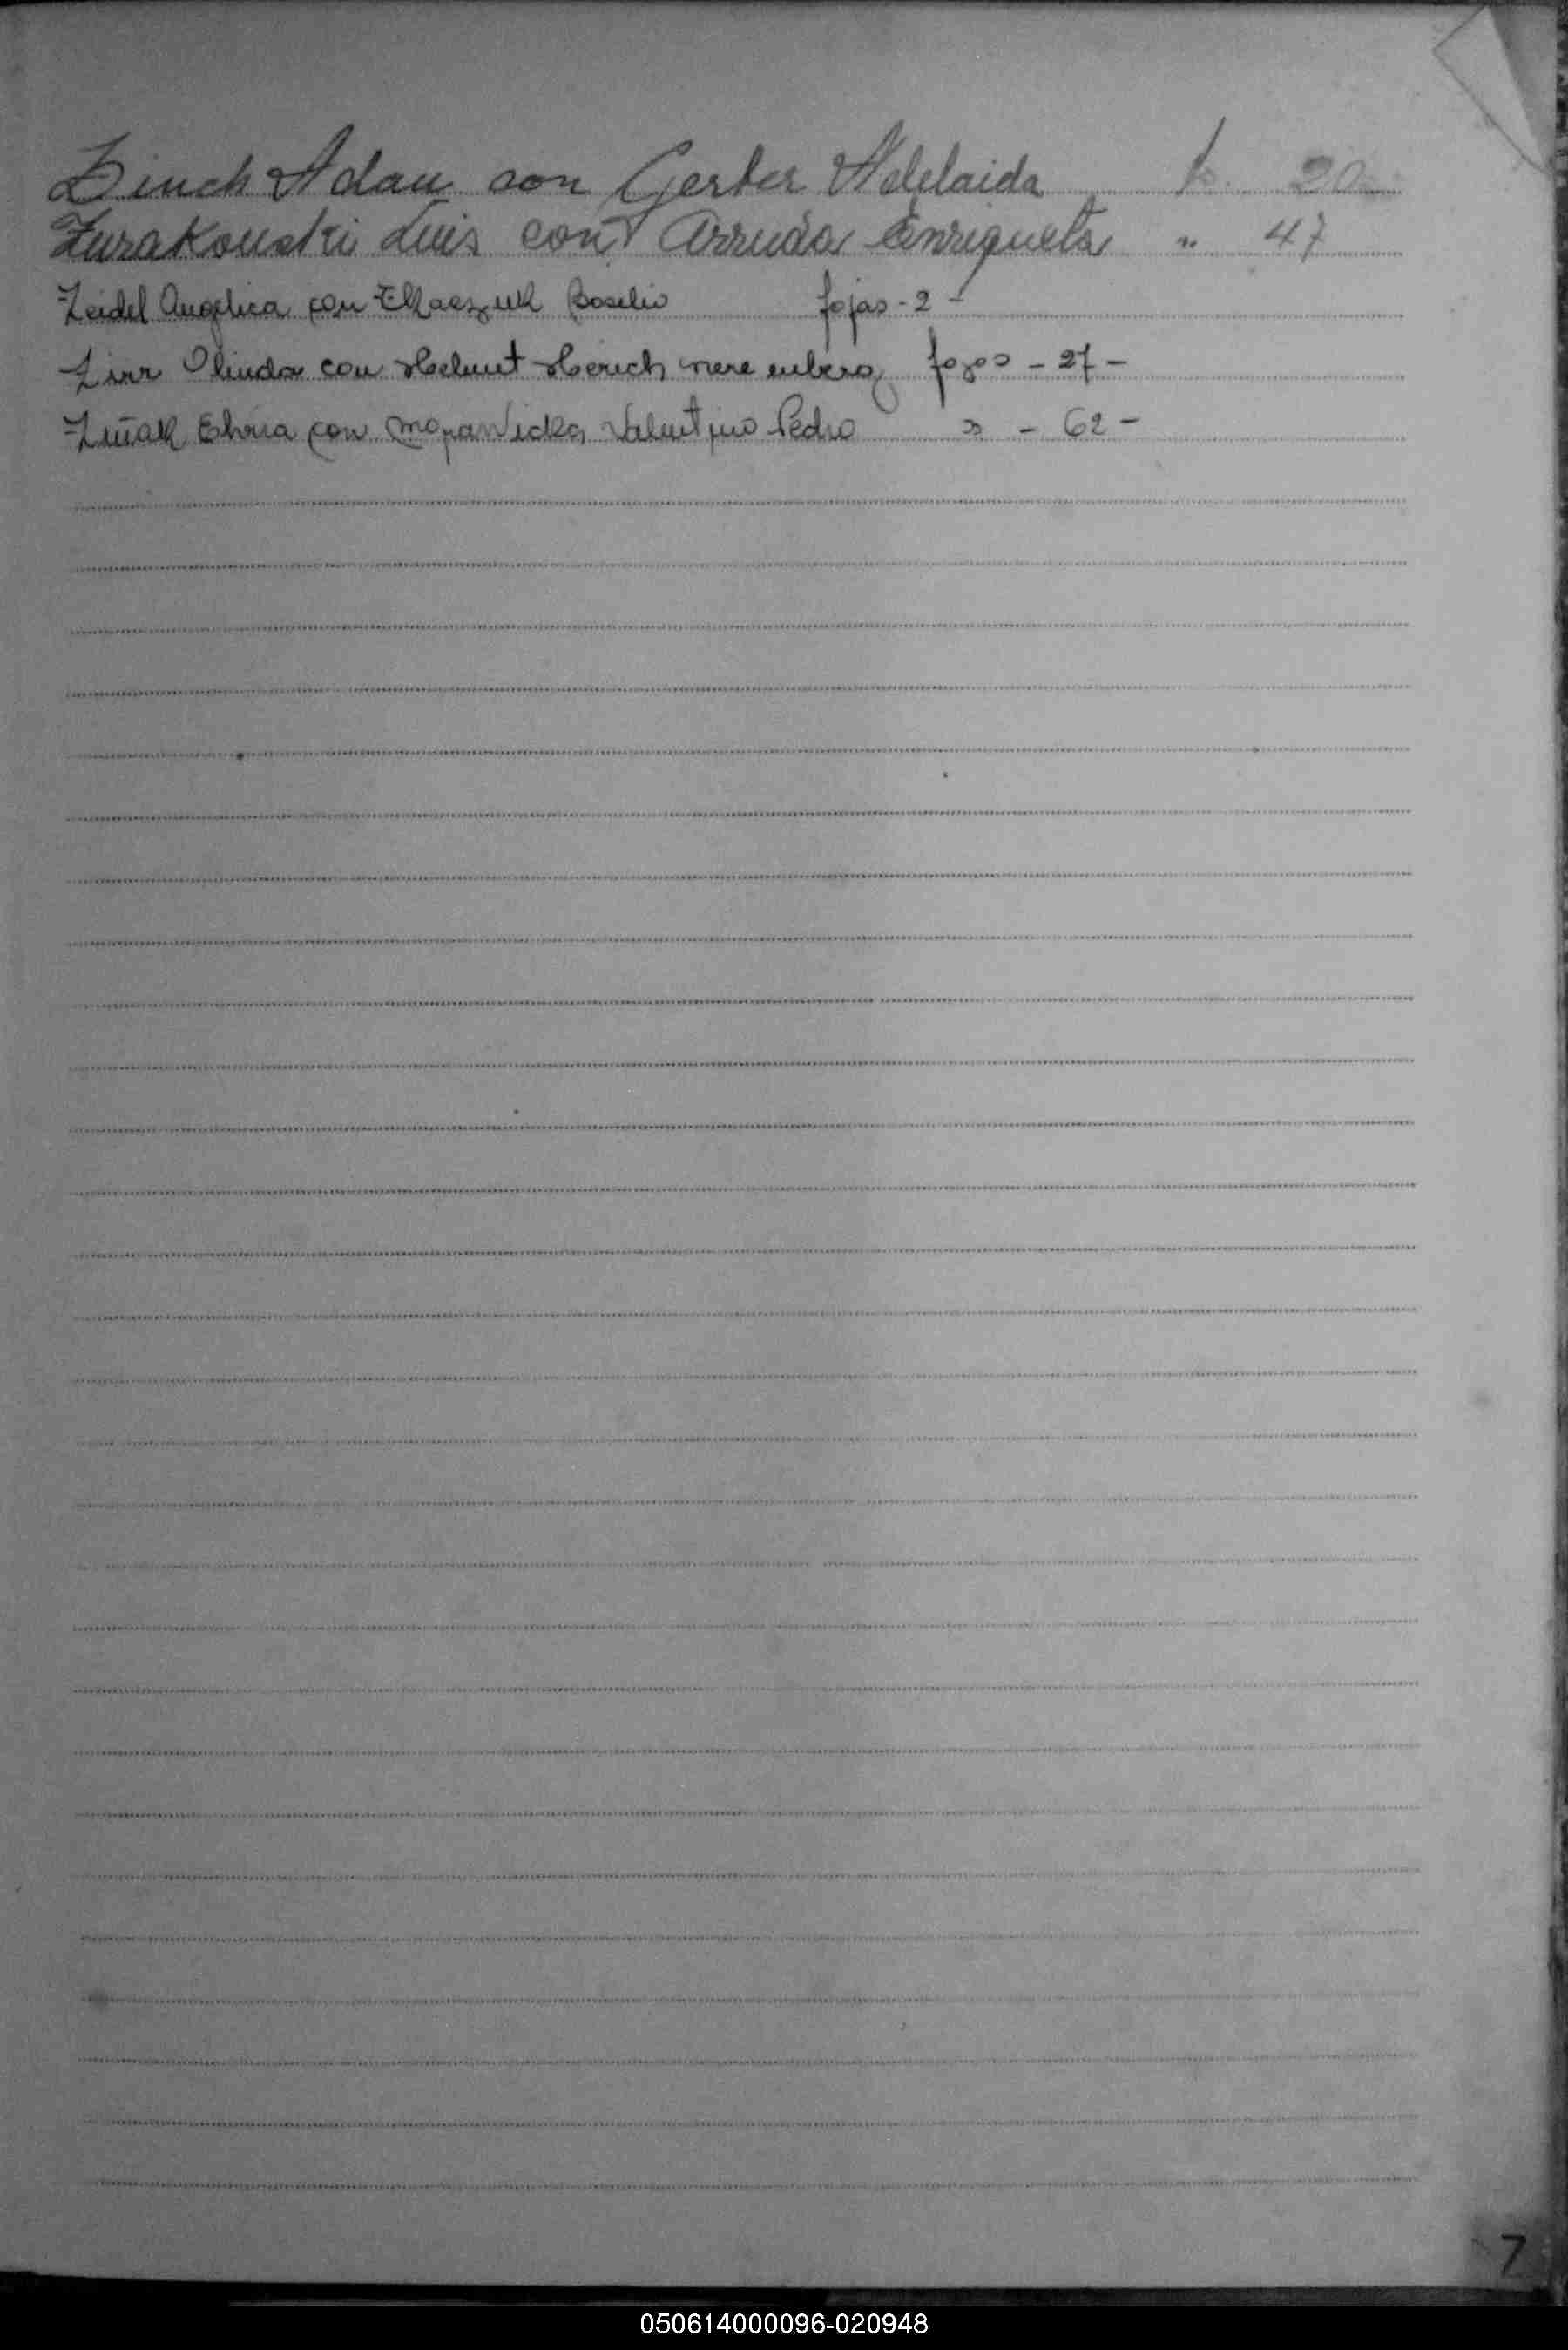 Zinch Adan con Gerber Adelaida fo. 20
Zurakouski Luis con Arruda Enriqueta " 47
Zeidel Angelica con Tkaczuk Basilio fojas - 2 -
Zirr Olinda con Helmut Herich nere enberg fojas - 27 -
Zuñak con Valentino Pedro " - 62 -
Z
050614000096-020948